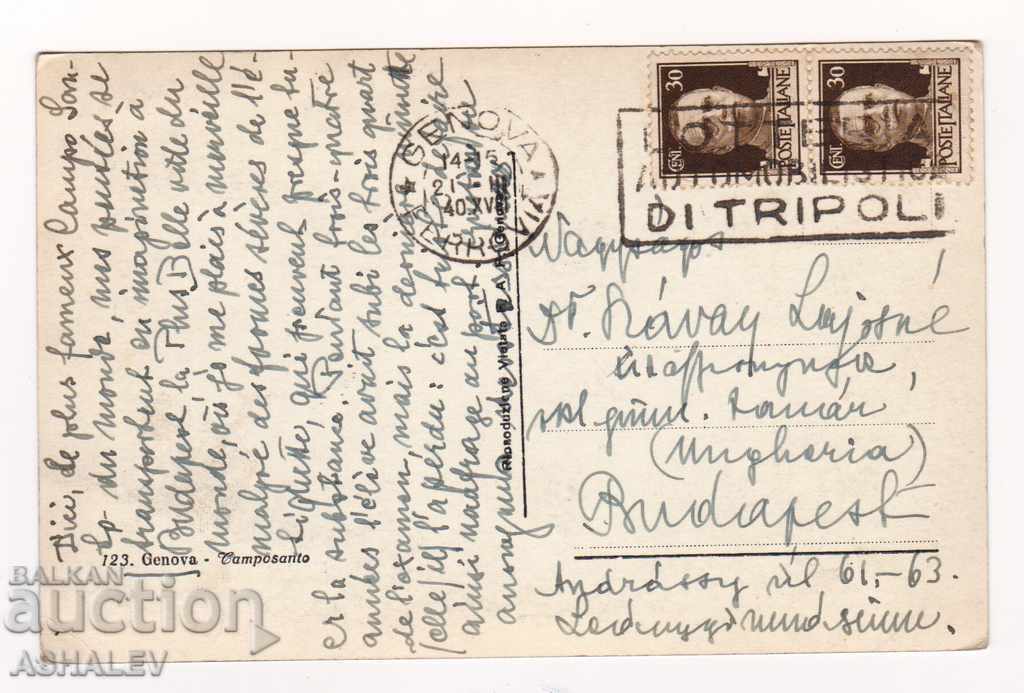 D'ici, de plus fameux Campo San-
to du monde, mes pensées se
transportent en imagination à
Budapest la Plus Belle ville du
monde, où je me plais à merveille
malgré des formes sévères de l'é-
tiquette, qui peuvent presque tu-
er la substance. Pendant trois-quatre
années l'élève avait subi les trois quart
de l'examen, mais la dernière minute
(elle) il l'a perdu: c'est à dire
ainsi naufrage au port.
anonyme
123. Genova - Camposanto
Riproduzione Vietata
GENOVA
FERROVIA
14-15
21
40.XVIII
30
CENT.
POSTE ITALIANE
30
CENT.
POSTE ITALIANE
AUTOMOBILISTICO
DI TRIPOLI
Nagysága
Dr. Kávay Lajosné
úrasszonynak,
gimn. tanár
(Ungheria)
Budapest
Andrássy út 61.-63.
Leánygimnázium.
BALKAN
auction
ASHALEV